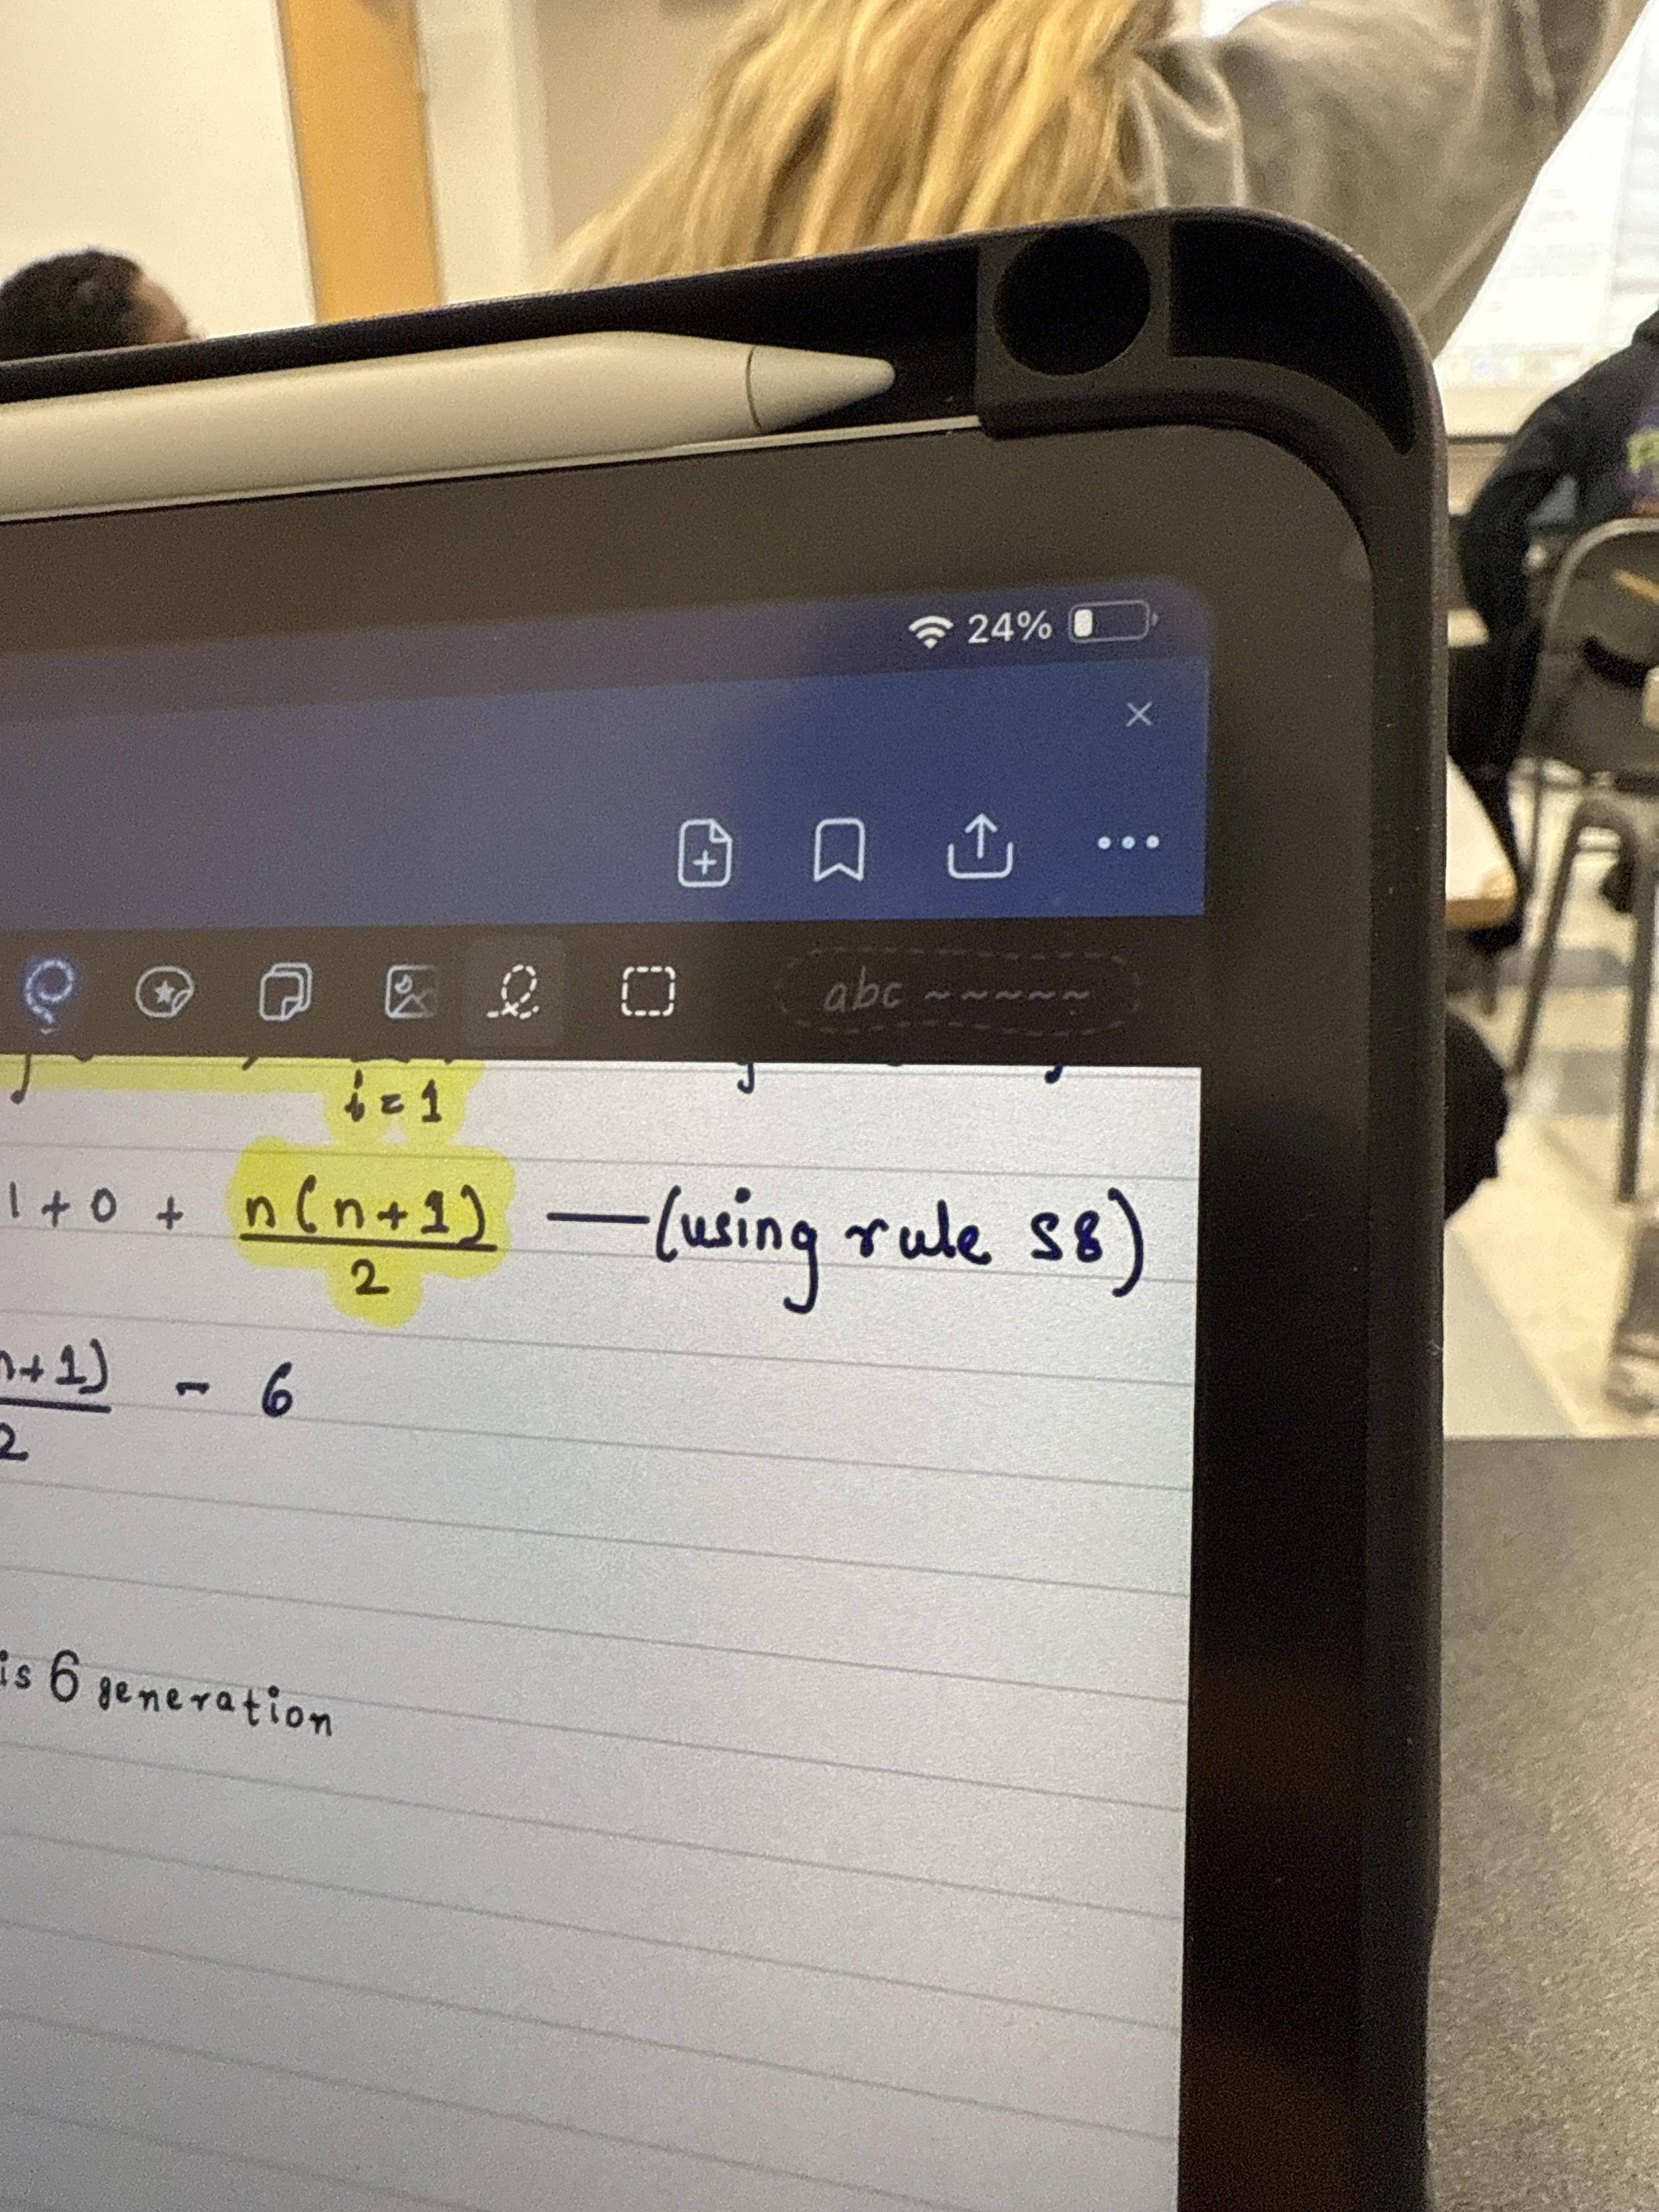 24%
abc ~~~~~
i = 1
1 + 0 + n(n+1)/2 — (using rule S8)
n+1)/2 - 6
is 6 generation